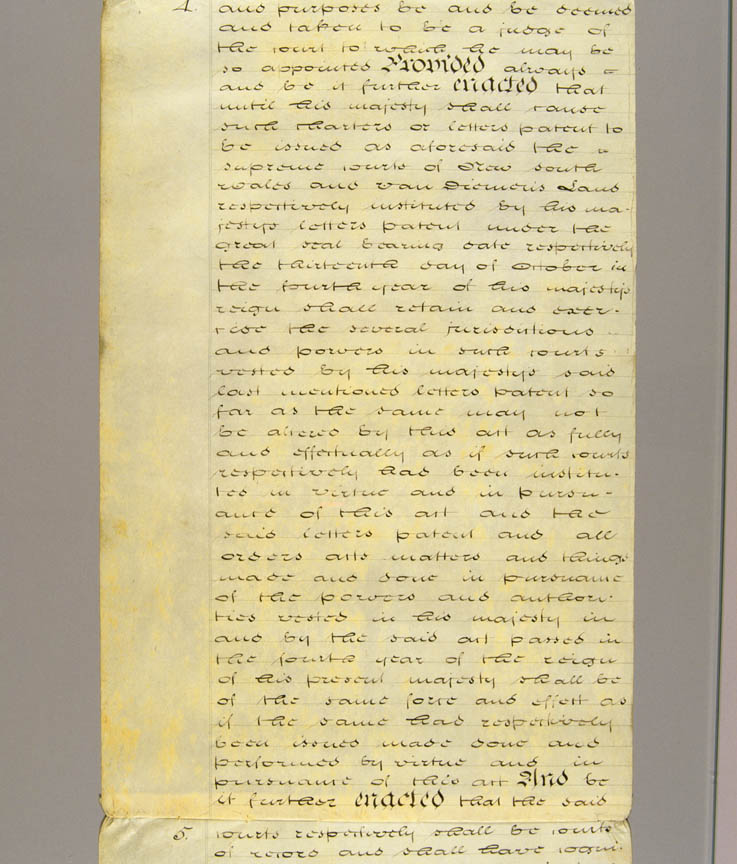 4. and purposes be and be deemed
and taken to be a judge of
the court to which he may be
so appointed Provided always
and be it further enacted that
until his majesty shall cause
such charters or letters patent to
be issued as aforesaid the
supreme courts of New south
wales and van Diemen's Land
respectively instituted by his ma-
jestys letters patent under the
great seal bearing date respectively
the thirteenth day of October in
the fourth year of his majestys
reign shall retain and exer-
cise the several jurisdictions
and powers in such courts
vested by his majestys said
last mentioned letters patent so
far as the same may not
be altered by this act as fully
and effectually as if such courts
respectively had been institu-
ted in virtue and in pursu-
ance of this act and the
said letters patent and all
orders acts matters and things
made and done in pursuance
of the powers and authori-
ties vested in his majesty in
and by the said act passed in
the fourth year of the reign
of his present majesty shall be
of the same force and effect as
if the same had respectively
been issued made done and
performed by virtue and in
pursuance of this act And be
it further enacted that the said
5. courts respectively shall be courts
of record and shall have cogni-